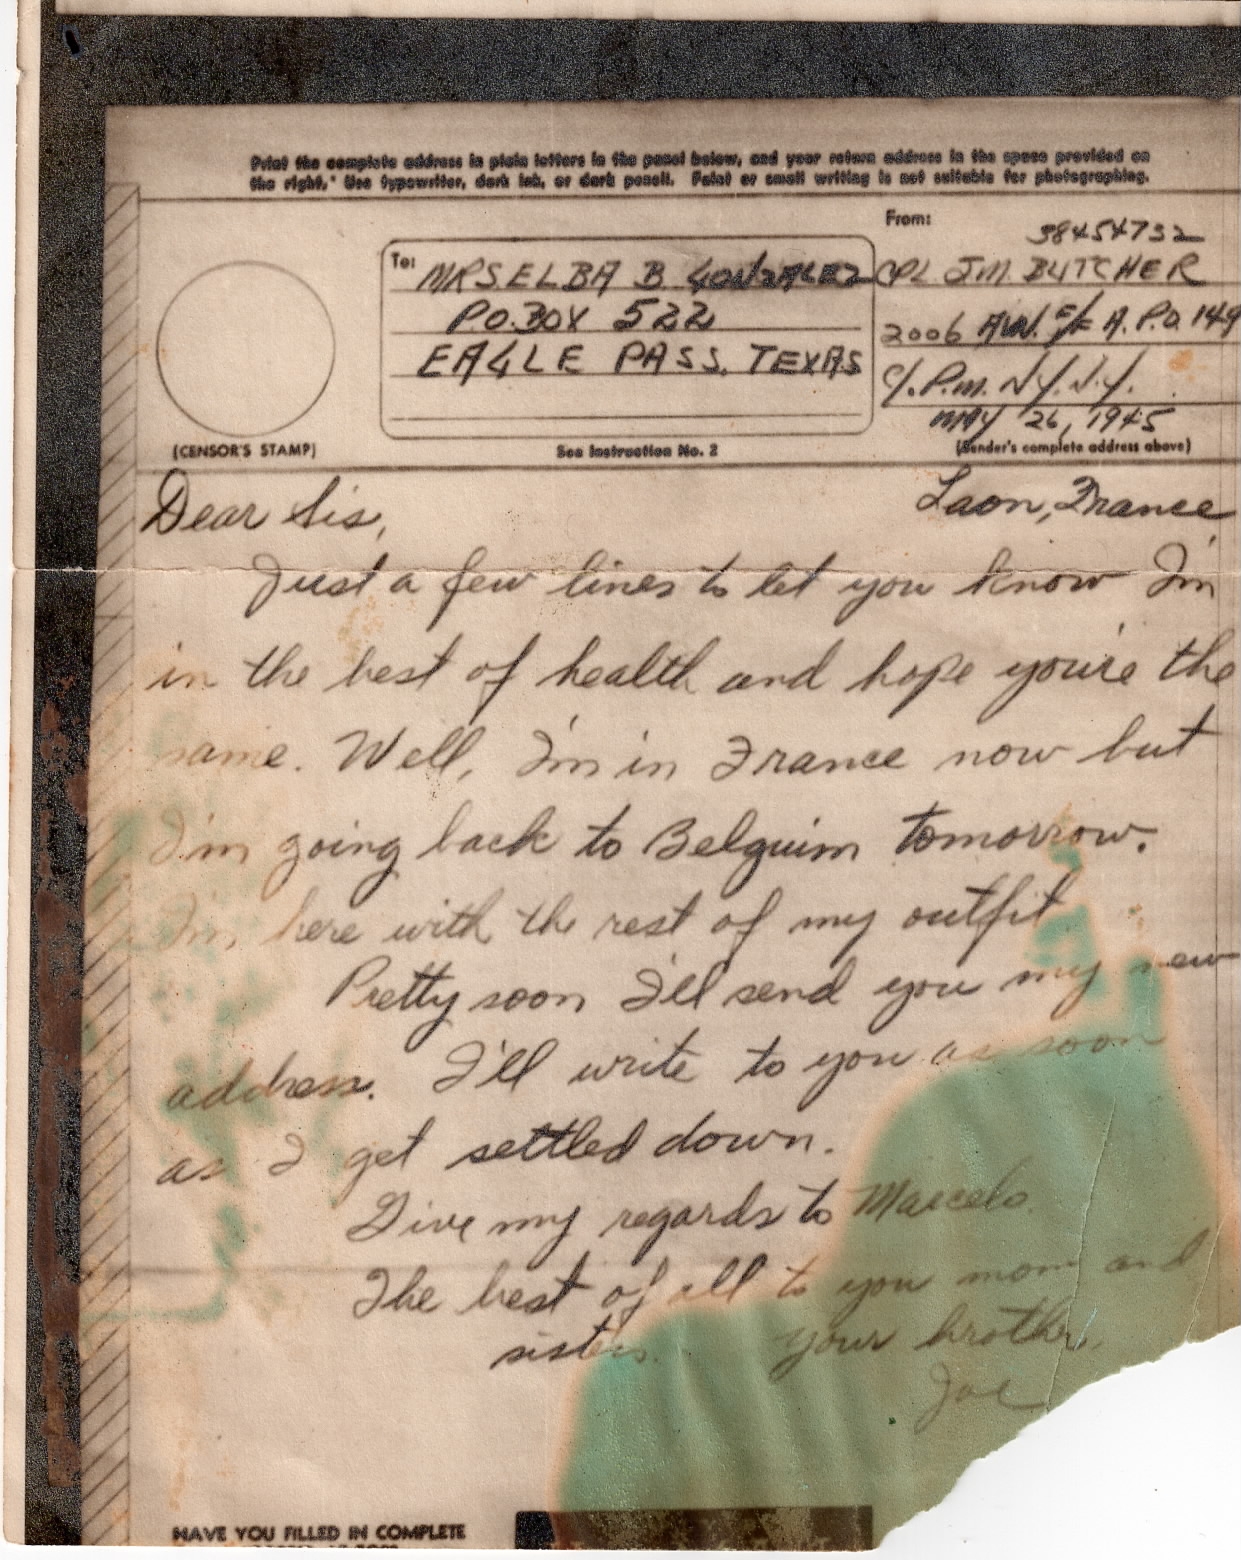 Print the complete address in plain letters in the panel below, and your return address in the space provided on
the right. Use typewriter, dark ink, or dark pencil. Faint or small writing is not suitable for photographing.
To:
MRS ELBA B GONZALEZ
P.O. BOX 522
EAGLE PASS, TEXAS
(CENSOR'S STAMP)
See Instruction No. 2
From:
38454732
CPL J.M. BUTCHER
2006 A.P.O. 149
C/. P.M. N.Y. N.Y.
MAY 26, 1945
(Sender's complete address above)
Laon, France
Dear Sis,
Just a few lines to let you know I'm
in the best of health and hope you're the
same. Well, I'm in France now but
I'm going back to Belguim tomorrow.
I'm here with the rest of my outfit
Pretty soon I'll send you my new
address. I'll write to you as soon
as I get settled down.
Give my regards to Marcelo.
The best of all to you mom and
sisters. Your brother,
Joe
HAVE YOU FILLED IN COMPLETE